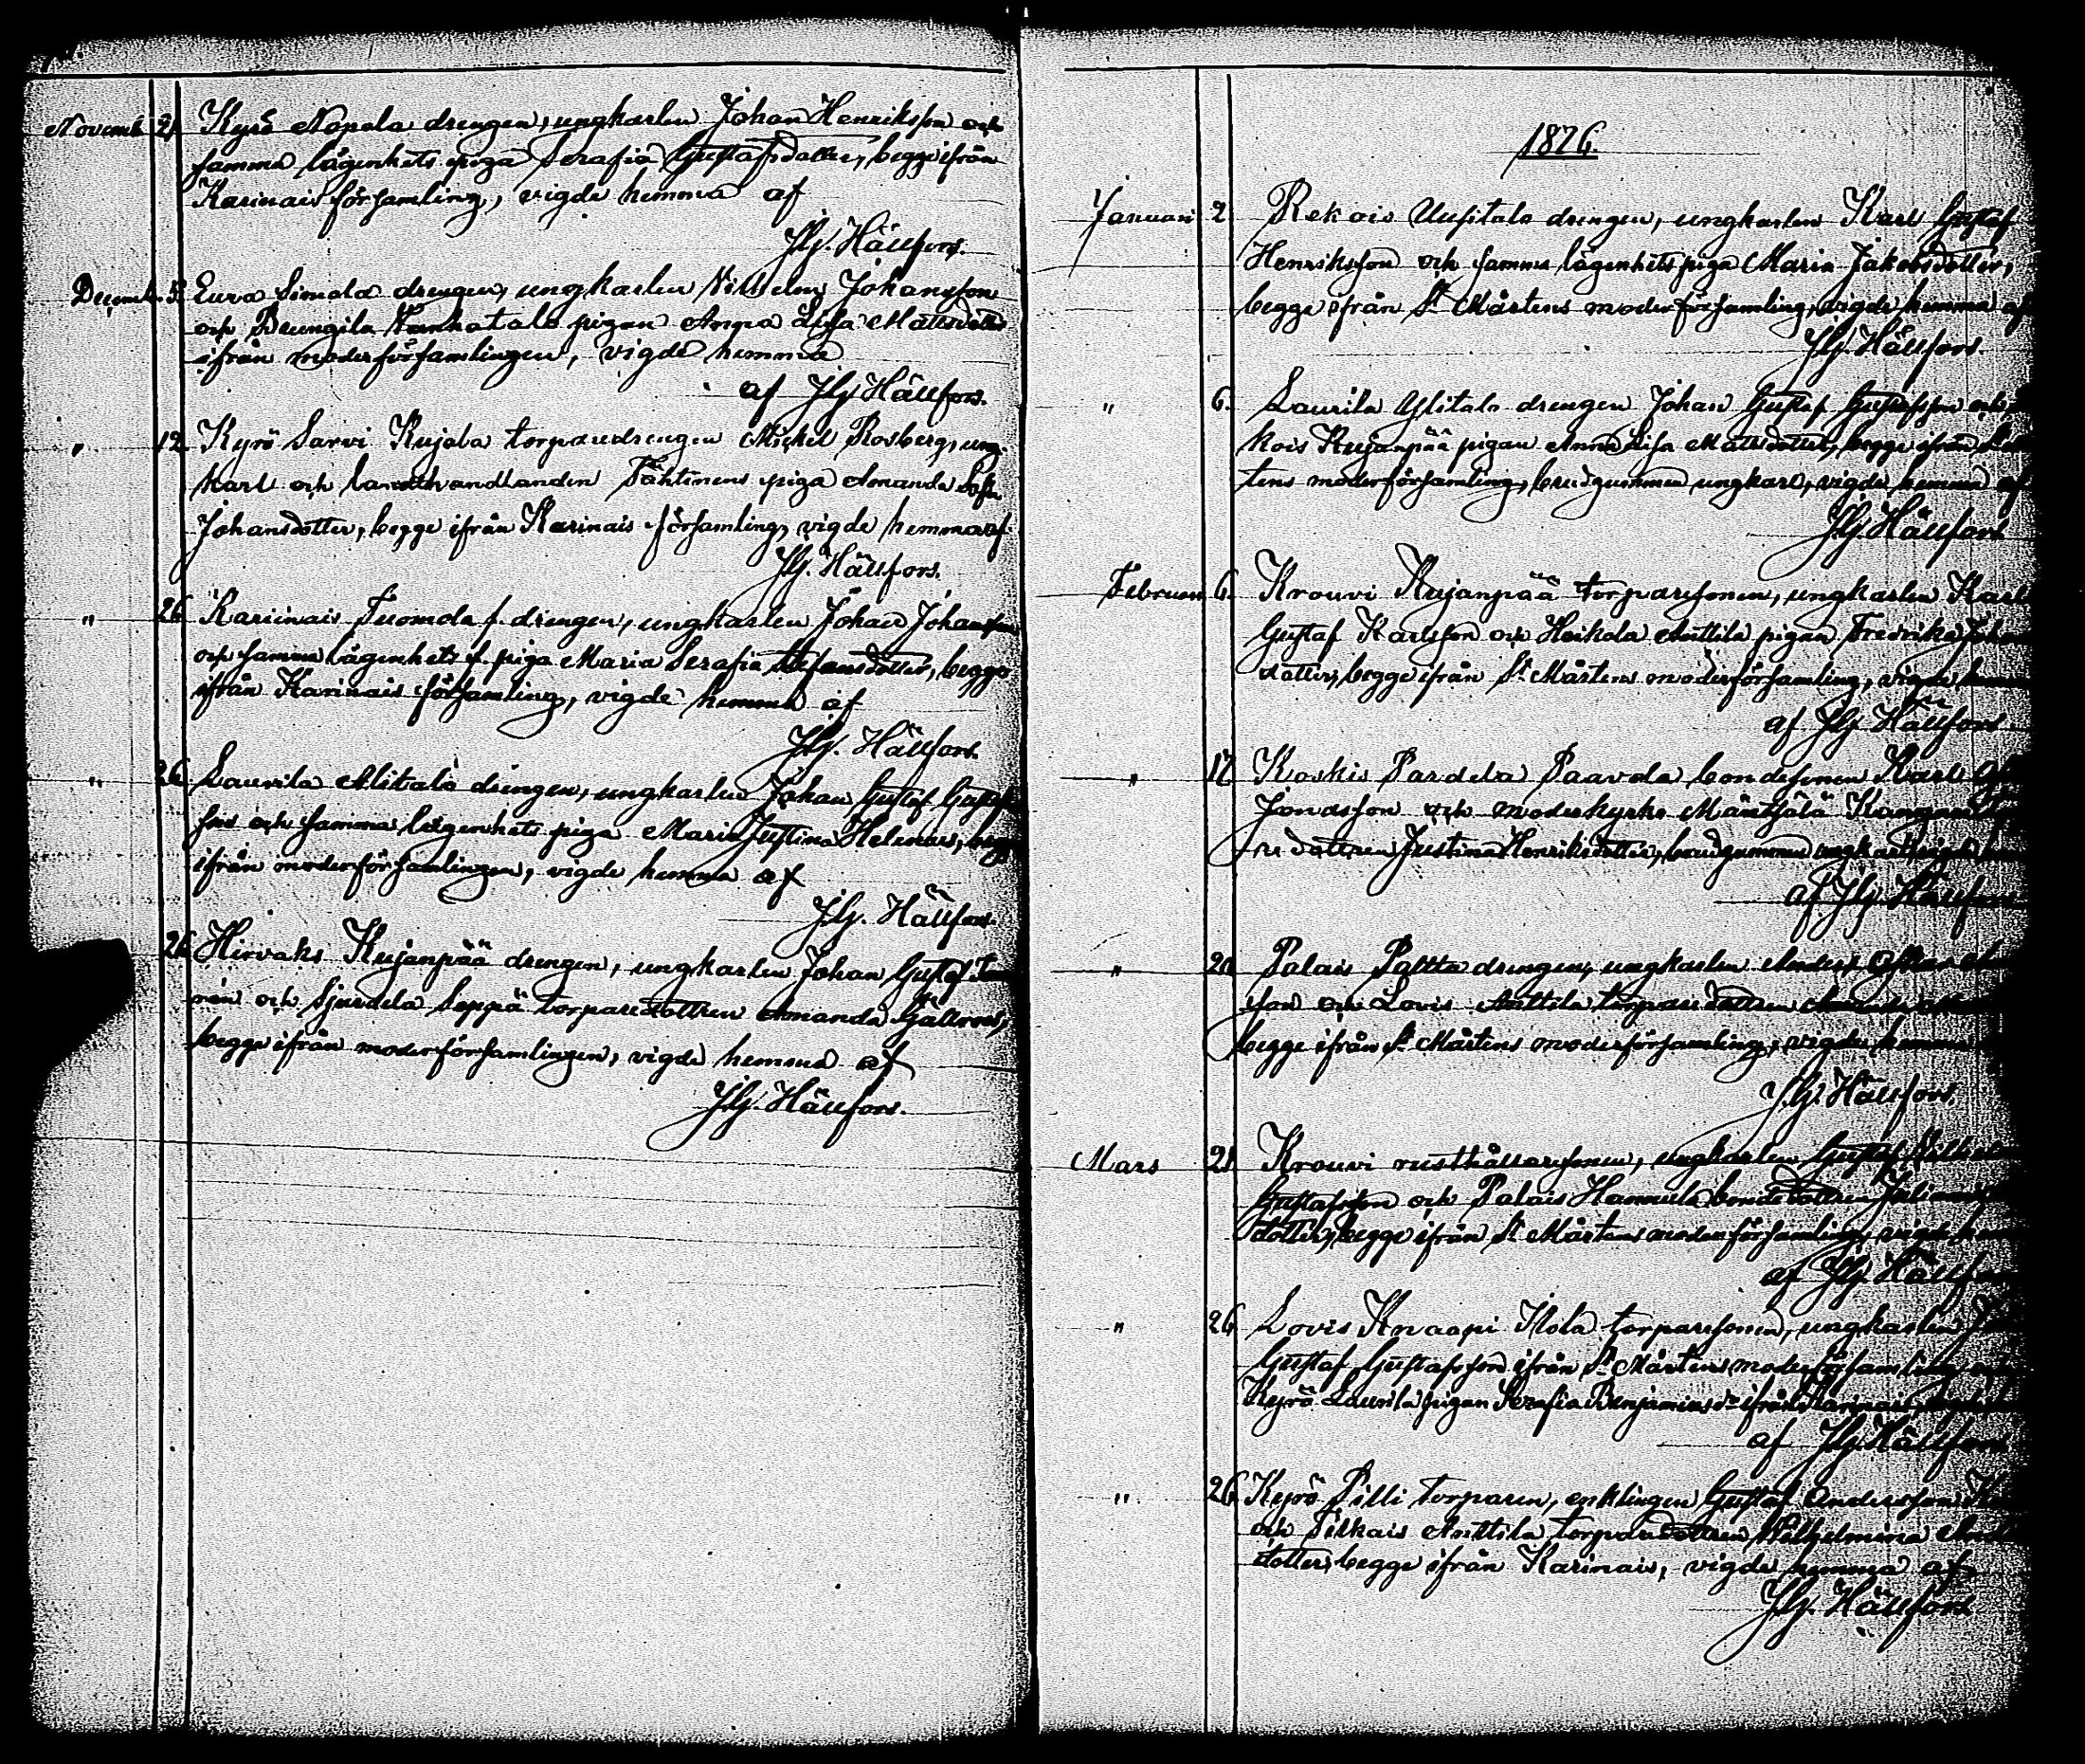 Novemb. 21. Kyrö Nopola drengen, ungkarlen Johan Henriksson och
samma lägenhets piga Serafia Gustafsdotter, begge ifrån
Karinais församling, vigde hemma af
J.G. Hällfors.
Decemb. 5. Eura Simola drengen, ungkarlen Vilhelm Johansson
och Vanhatalo pigan Anna Lisa Mattsdotter
ifrån moderförsamlingen, vigde hemma
af J.G. Hällfors.
" 12. Kyrö Sarvi Kujala torparedrengen Mickel Rosberg, ung-
karl och landthandlanden Tähtinens piga Amanda Sofia
Johansdotter, begge ifrån Karinais församling, vigde hemma af
J.G. Hällfors.
" 26. Karinais Tuomola f. drengen, ungkarlen Johan Johansson
och samma lägenhets f. piga Maria Serafia Stefansdotter, begge
ifrån Karinais församling, vigde hemma af
J.G. Hällfors.
" 26. Laurila Alitalo drengen, ungkarlen Johan Gustaf Gustafs-
son och samma lägenhets piga Maria Justina Helenius, begge
ifrån moderförsamlingen, vigde hemma af
J.G. Hällfors.
26. Hirvaks Kujanpää drengen, ungkarlen Johan Gustaf
och Seppä torparedottren Amanda
begge ifrån moderförsamlingen, vigde hemma af
J.G. Hällfors.
1876.
Januari 2. Rekois Uusitalo drengen, ungkarlen Karl Gustaf
Henriksson och samma lägenhets piga Maria Jakobsdotter,
begge ifrån St Mårtens moderförsamling, vigde hemma af
J.G. Hällfors.
" 6. Laurila Ylitalo drengen Johan Gustaf Gustafsson och
kois Kujanpää pigan Anna Lisa Mattsdotter, begge ifrån
tens moderförsamling, brudgummen ungkarl, vigde hemma af
J.G. Hällfors
Februari 6. Krouvi Kujanpää torparesonen, ungkarlen Karl
Gustaf Karlsson och Heikola Anttila pigan Fredrika Johans
dotter, begge ifrån St Mårtens moderförsamling, vigde hemma
af J.G. Hällfors
" 17. Koskis Pardela Paavola bondesonen Karl
Jonasson och moderkyrko Mäntsälä
dottren Justina Henriksdotter, brudgummen ungkarl
af J.G. Hällfors
" 20. Palais Paltta drengen, ungkarlen Anders
son och Lovis Anttila torparedottren
begge ifrån St Mårtens moderförsamling, vigde hemma
J.G. Hällfors.
Mars 21. Krouvi rusthållaresonen, ungkarlen Gustaf
Gustafsson och Palais Hannula bondedottren
dotter, begge ifrån St Mårtens moderförsamling, vigde
af J.G. Hällfors
" 26. Lovis Knaapi torparesonen, ungkarlen
Gustaf Gustafsson ifrån St Mårtens moderförsamling
Kyrö Laurila pigan Serafia Benjaminsdr ifrån Karinais
af J.G. Hällfors
" 26. Kyrö Pilli torparen, enklingen Gustaf Andersson
och Anttila torparedottren Wilhelmina
dotter, begge ifrån Karinais, vigde hemma af
J.G. Hällfors